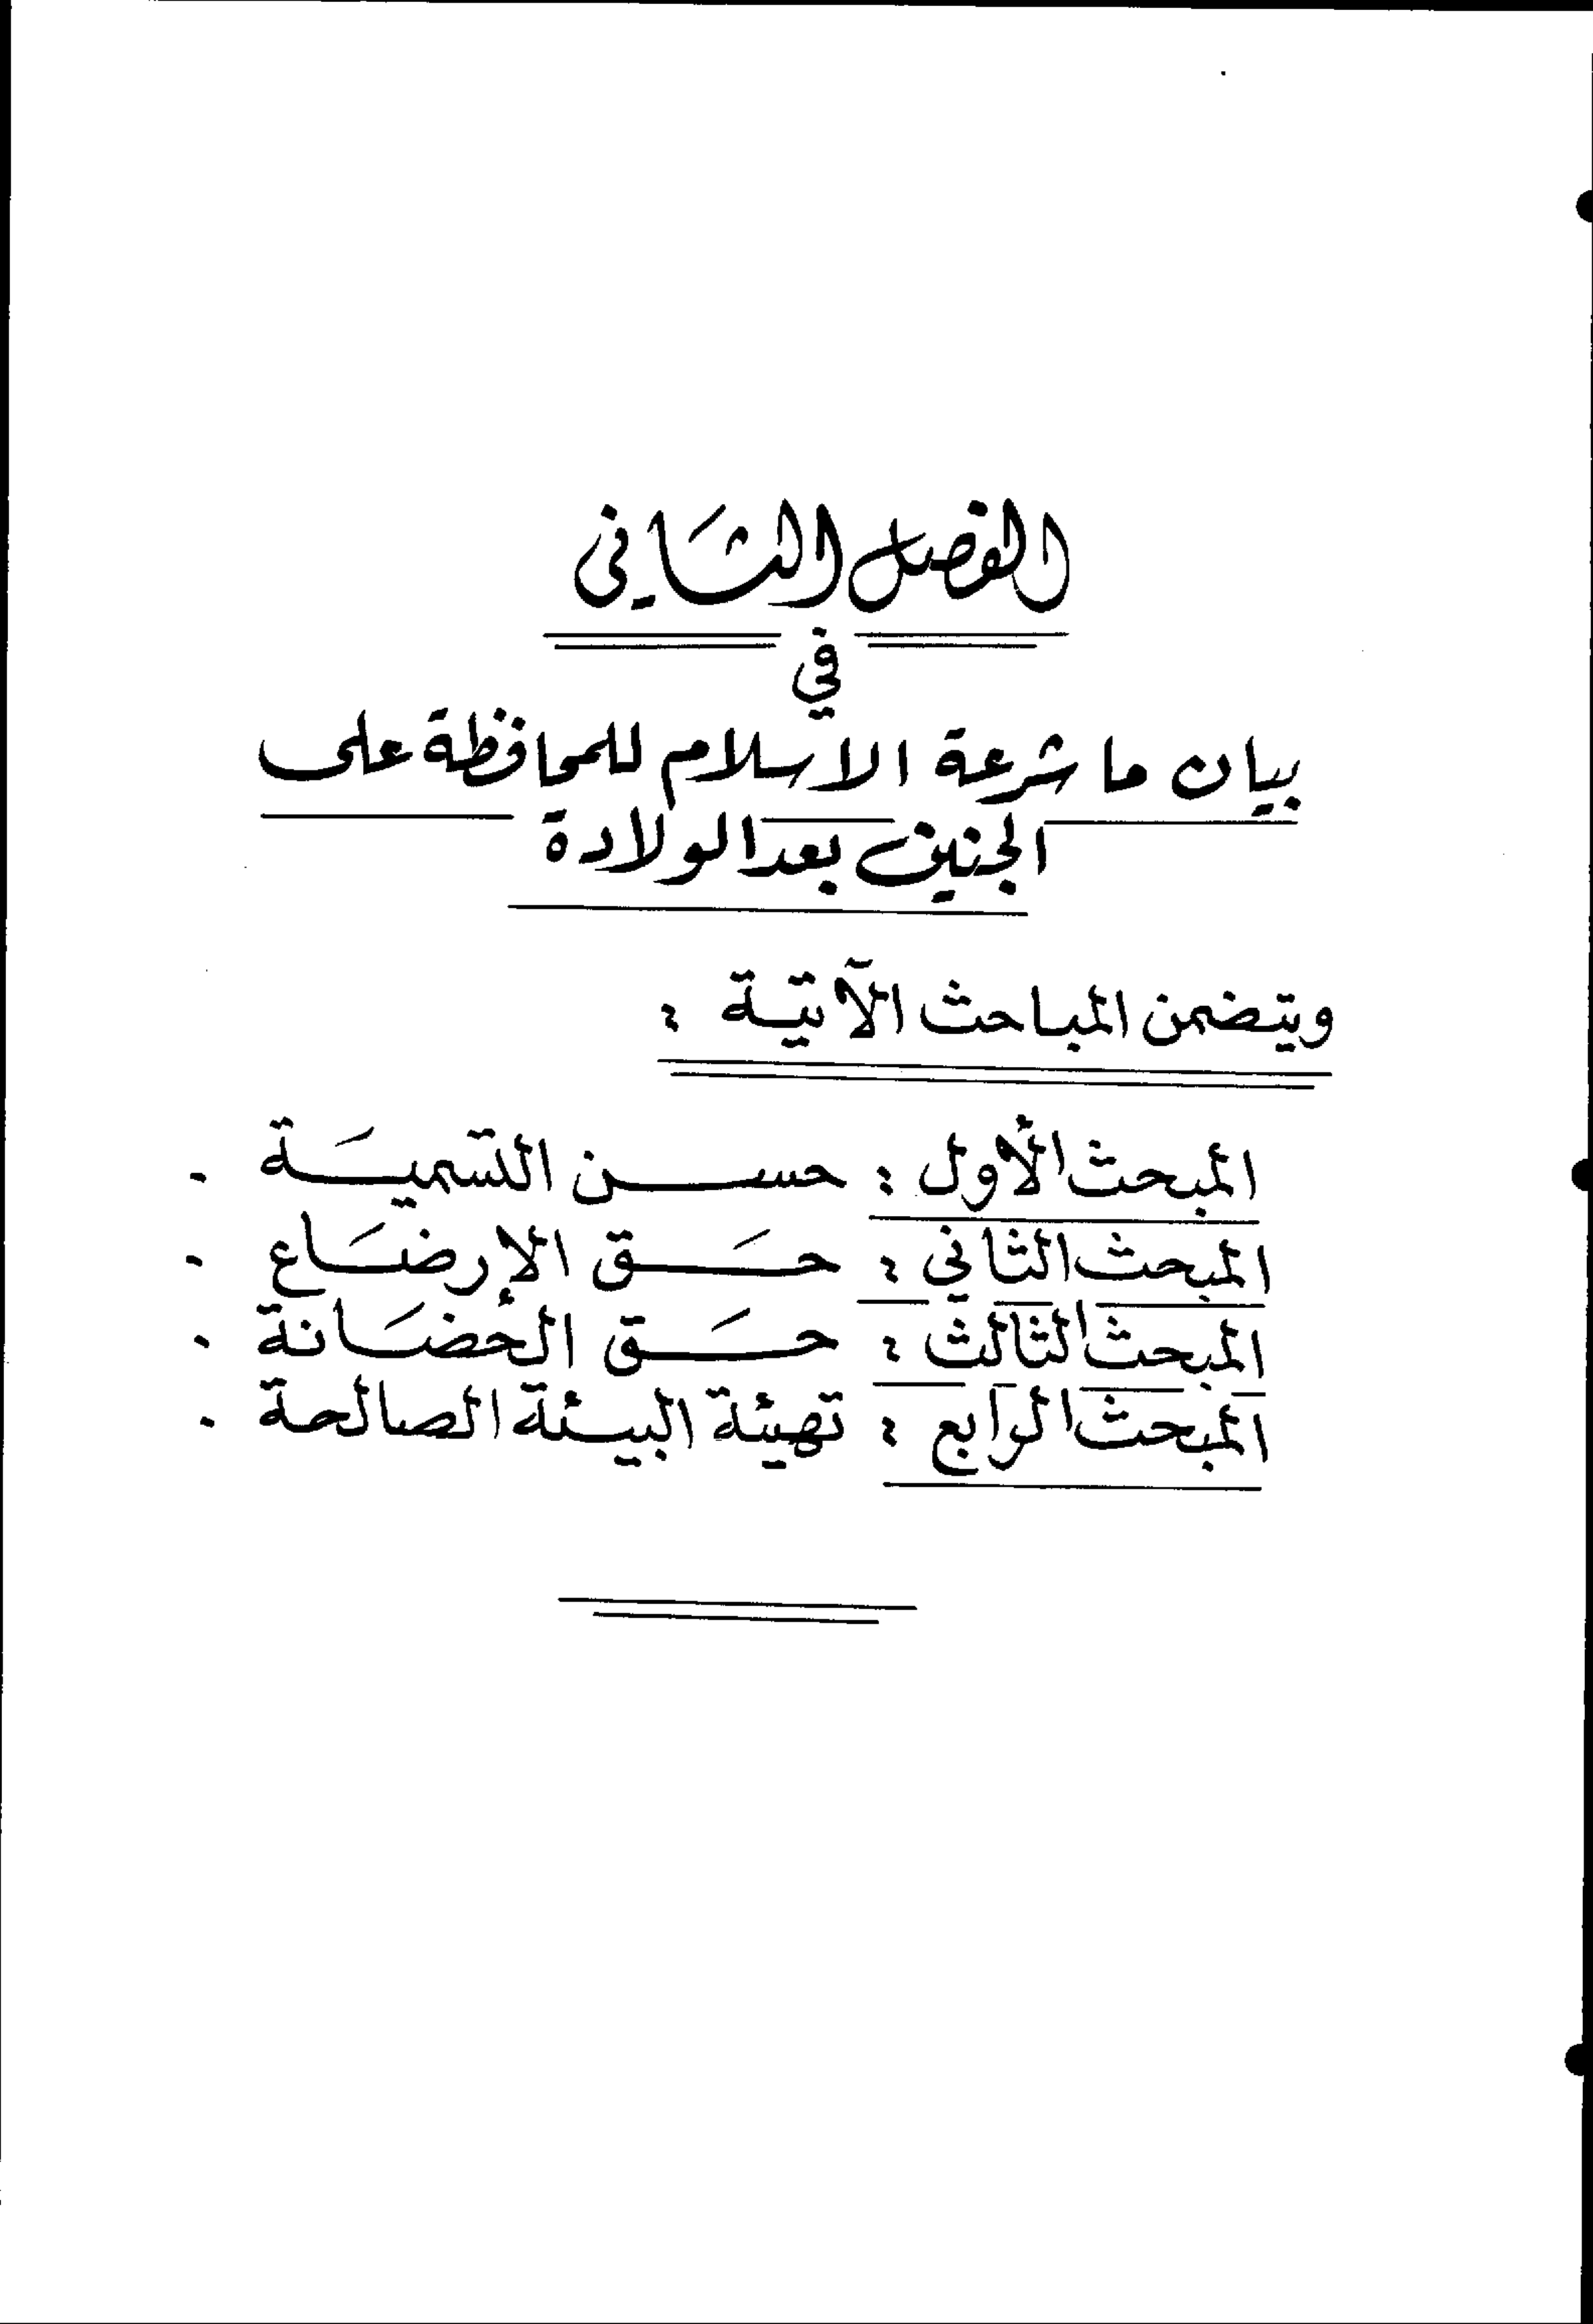 الفصل الثاني
في
بيان ما شرعة الاسلام للمحافظة على
الجنين بعد الولادة
ويتضمن المباحث الآتية :
المبحث الأول : حسن التسمية .
المبحث الثاني : حق الإرضاع .
المبحث الثالث : حق الحضانة .
المبحث الرابع : تهيئة البيئة الصالحة .